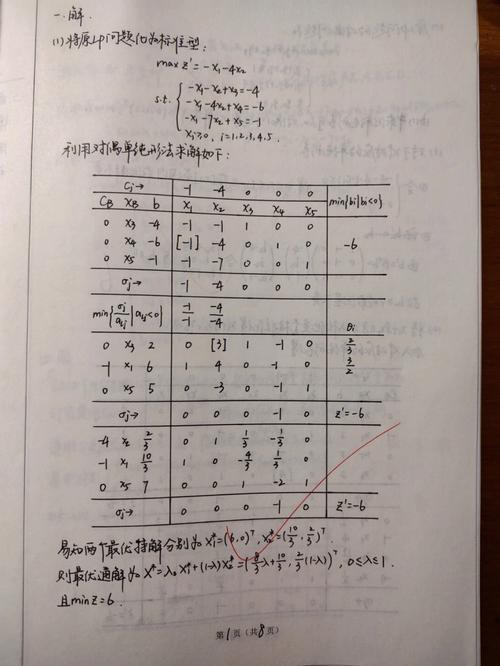 一.解.
(1)将原LP问题化为标准型:
max z' = -x₁-4x₂
s.t. { -x₁-x₂+x₃=-4
-x₁-4x₂+x₄=-6
-x₁-7x₂+x₅=-1
xᵢ≥0, i=1,2,3,4,5.
利用对偶单纯形法求解如下:
Cj→ -1 -4 0 0 0 min{bi|bi<0}
CB XB b x₁ x₂ x₃ x₄ x₅
0 x₃ -4 -1 -1 1 0 0
0 x₄ -6 [-1] -4 0 1 0 -6
0 x₅ -1 -1 -7 0 0 1
σj→ -1 -4 0 0 0
min{σj/aij|aij<0} -1/-1 -4/-4 θi
0 x₃ 2 0 [3] 1 -1 0 2/3
-1 x₁ 6 1 4 0 -1 0 3/2
0 x₅ 5 0 -3 0 -1 1
σj→ 0 0 0 -1 0 z'=-6
-4 x₂ 2/3 0 1 1/3 -1/3 0
-1 x₁ 10/3 1 0 -4/3 1/3 0
0 x₅ 7 0 0 1 -2 1
σj→ 0 0 0 -1 0 z'=-6
易知两个最优特解分别为 X₁*=(6,0)ᵀ, X₂*=(10/3, 2/3)ᵀ.
则最优通解为 X*=λX₁*+(1-λ)X₂*=(8/3λ+10/3, 2/3(1-λ))ᵀ, 0≤λ≤1.
且min z=6.
第1页(共8页)